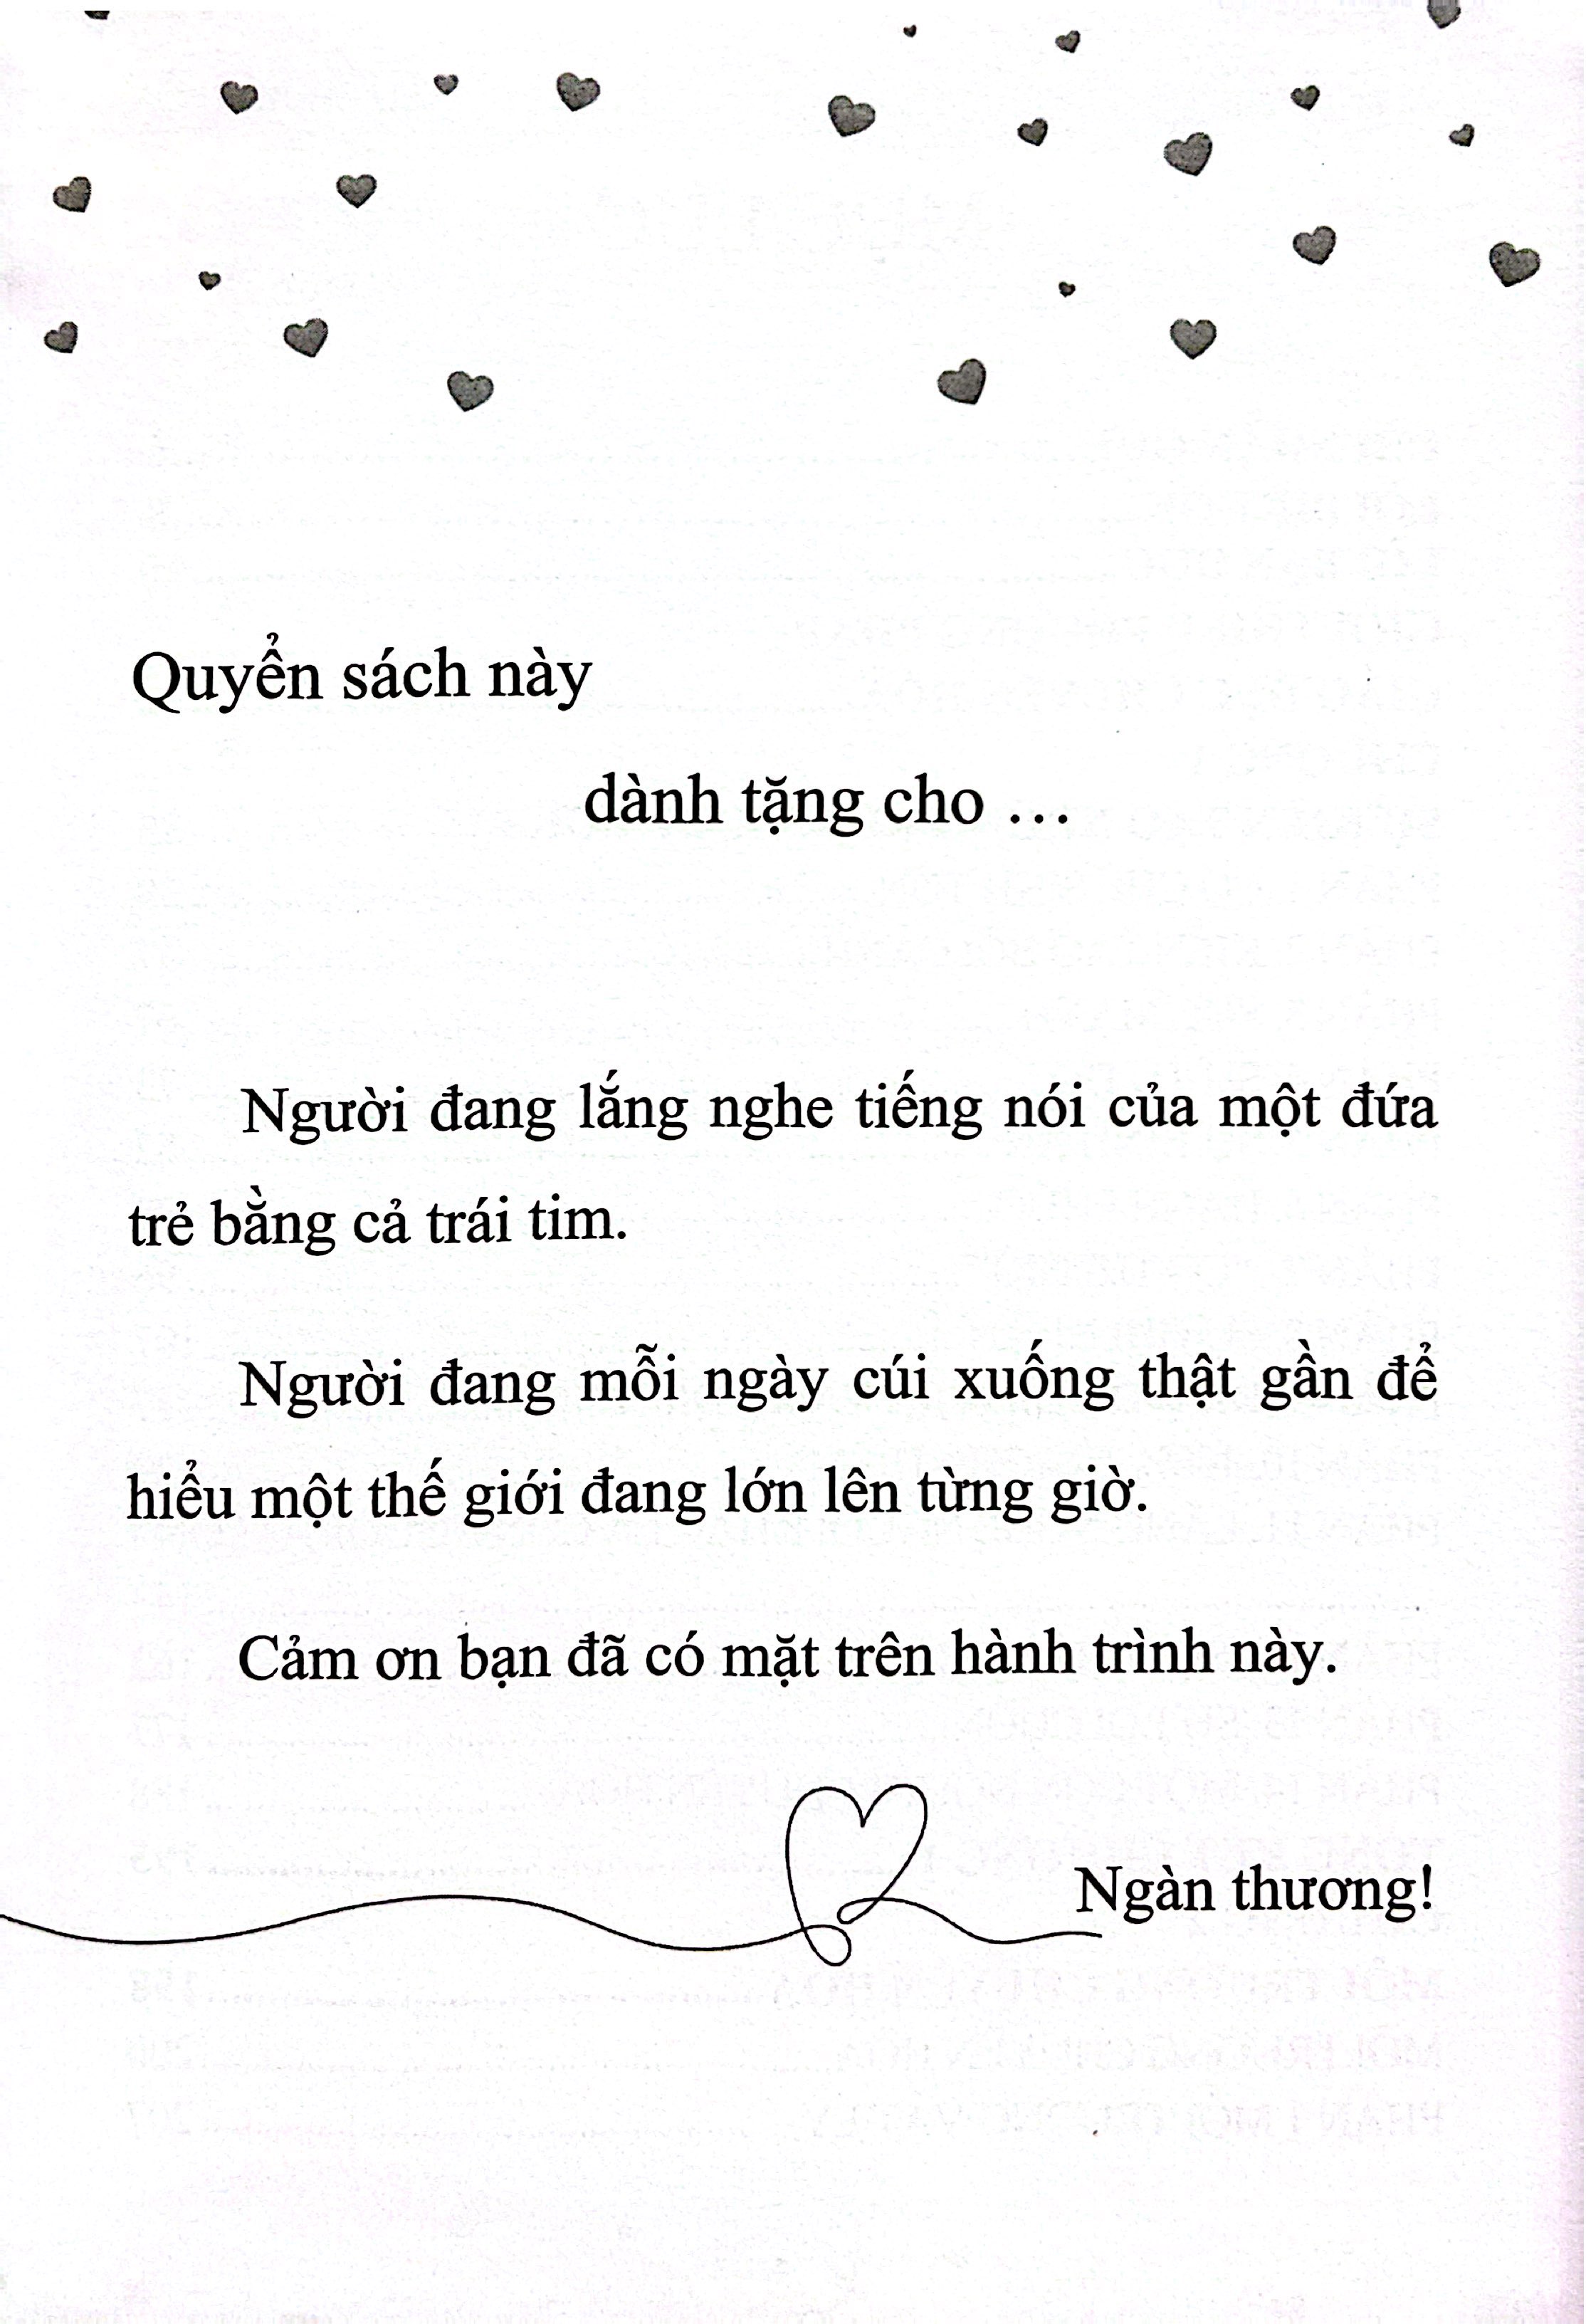 Quyển sách này
dành tặng cho …
Người đang lắng nghe tiếng nói của một đứa
trẻ bằng cả trái tim.
Người đang mỗi ngày cúi xuống thật gần để
hiểu một thế giới đang lớn lên từng giờ.
Cảm ơn bạn đã có mặt trên hành trình này.
Ngàn thương!